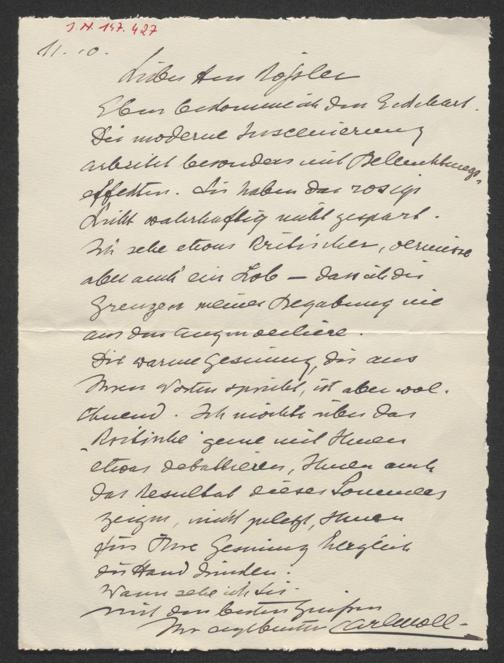 I.N. 147.427
11.10.
Lieber Herr Rössler
Eben bekomme ich den Eckehart.
Die moderne Inscenierung
arbeitet besonders mit Beleuchtungs
effekten. Sie haben das rosige
Licht wahrhaftig nicht gespart.
Ich sehe etwas kritischer, vermisse
aber auch ein Lob — dass ich die
Grenzen meiner Begabung nie
aus den Augen verliere.
Die warme Gesinnung, die aus
Ihren Worten spricht, ist aber wol-
thuend. Ich möchte über das
"Kritische" gerne mit Ihnen
etwas debattieren, Ihnen auch
das Resultat dieses Sommers
zeigen, nicht zuletzt, Ihnen
für Ihre Gesinnung herzlich
die Hand drücken.
Wann sehe ich Sie.
mit den besten Grüßen
Ihr ergebener Carl Moll